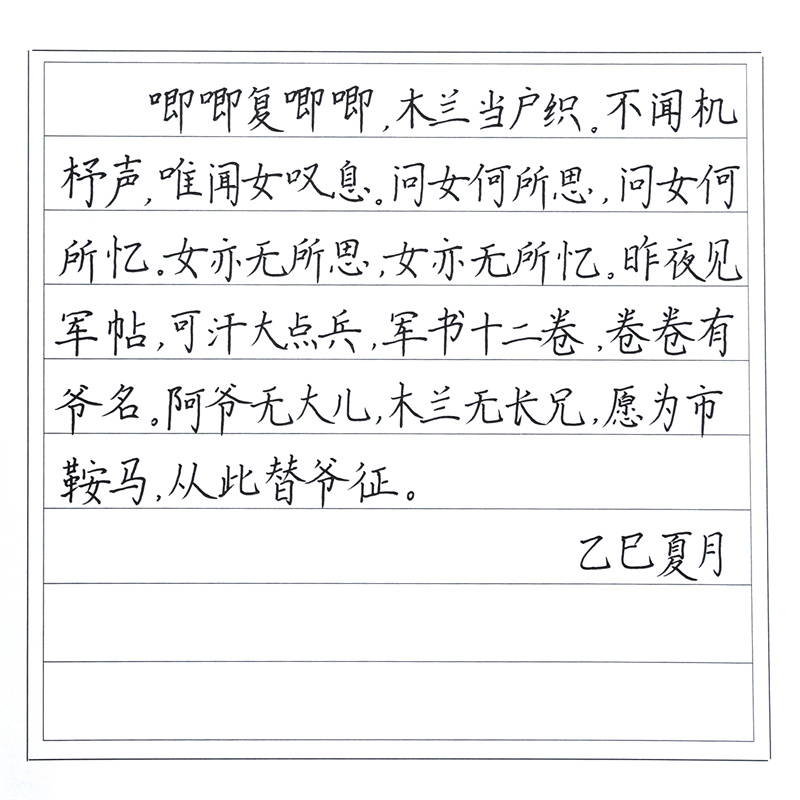 唧唧复唧唧,木兰当户织。不闻机
杼声,唯闻女叹息。问女何所思,问女何
所忆。女亦无所思,女亦无所忆。昨夜见
军帖,可汗大点兵,军书十二卷,卷卷有
爷名。阿爷无大儿,木兰无长兄,愿为市
鞍马,从此替爷征。
乙巳夏月